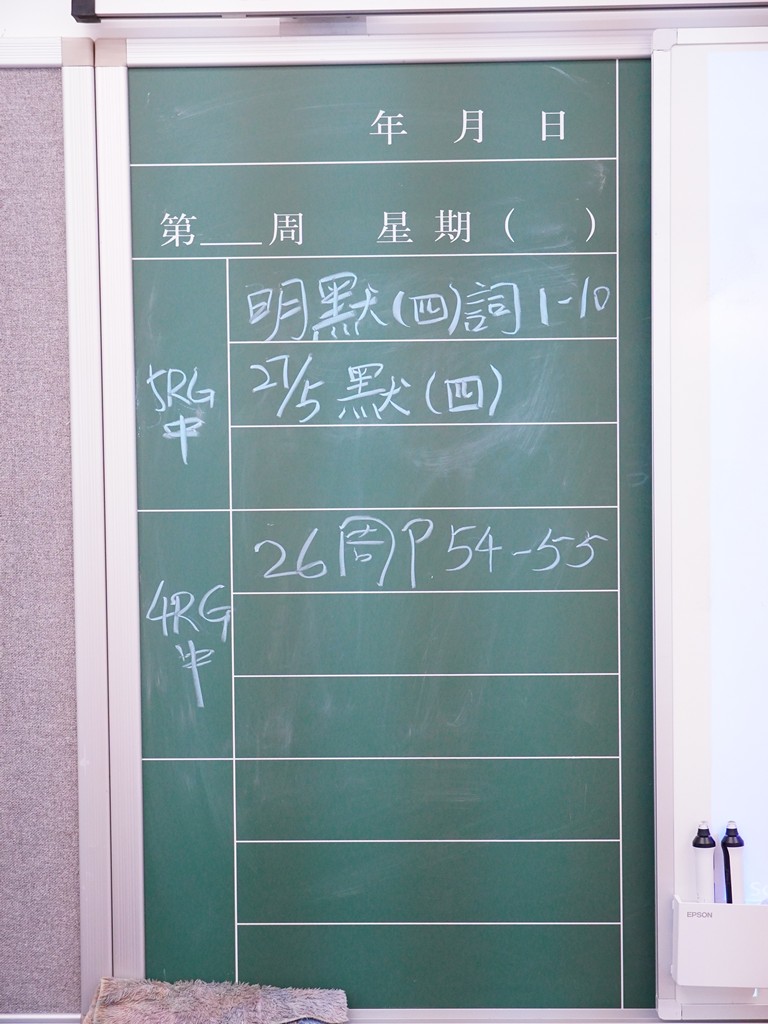 年 月 日
第___周 星期( )
明默(四)詞1-10
5RG
中
27/5 默(四)
26周P.54-55
4RG
中
EPSON